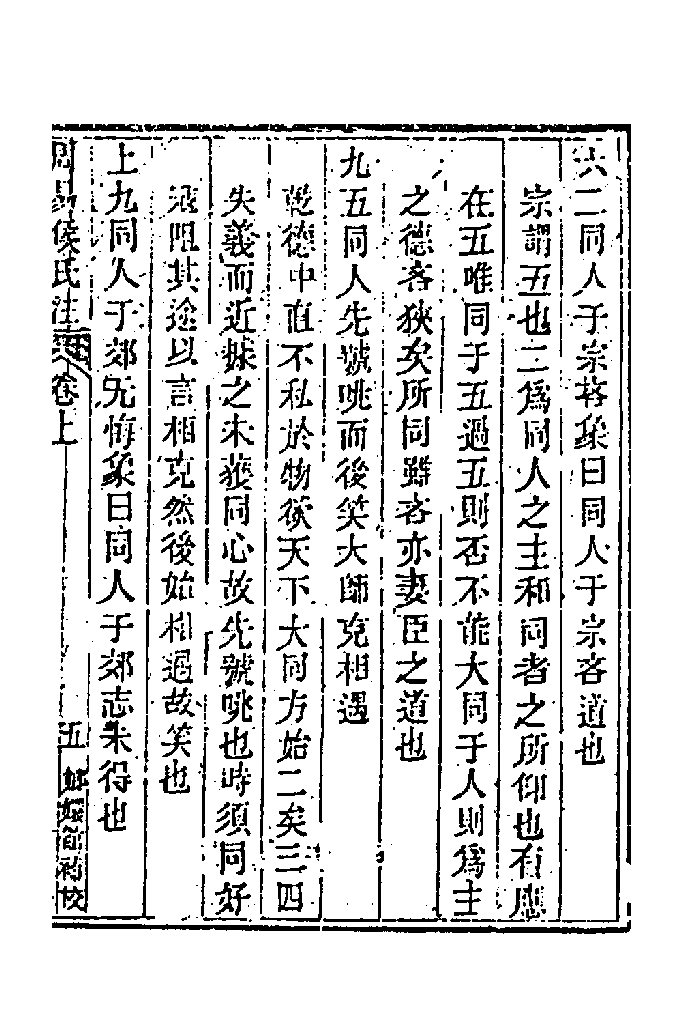 六二同人于宗吝象曰同人于宗吝道也
宗謂五也二爲同人之主和同者之所仰也有應
在五唯同于五過五則否不能大同于人則爲主
之德吝狹矣所同雖吝亦妻臣之道也
九五同人先號咷而後笑大師克相遇
乾德中直不私於物欲天下大同方始二矣三四
失義而近據之未獲同心故先號咷也時須同好
阻其途以言相克然後始相遇故笑也
上九同人于郊无悔象曰同人于郊志未得也
周易侯氏注卷上
五
嫏嬛館補校